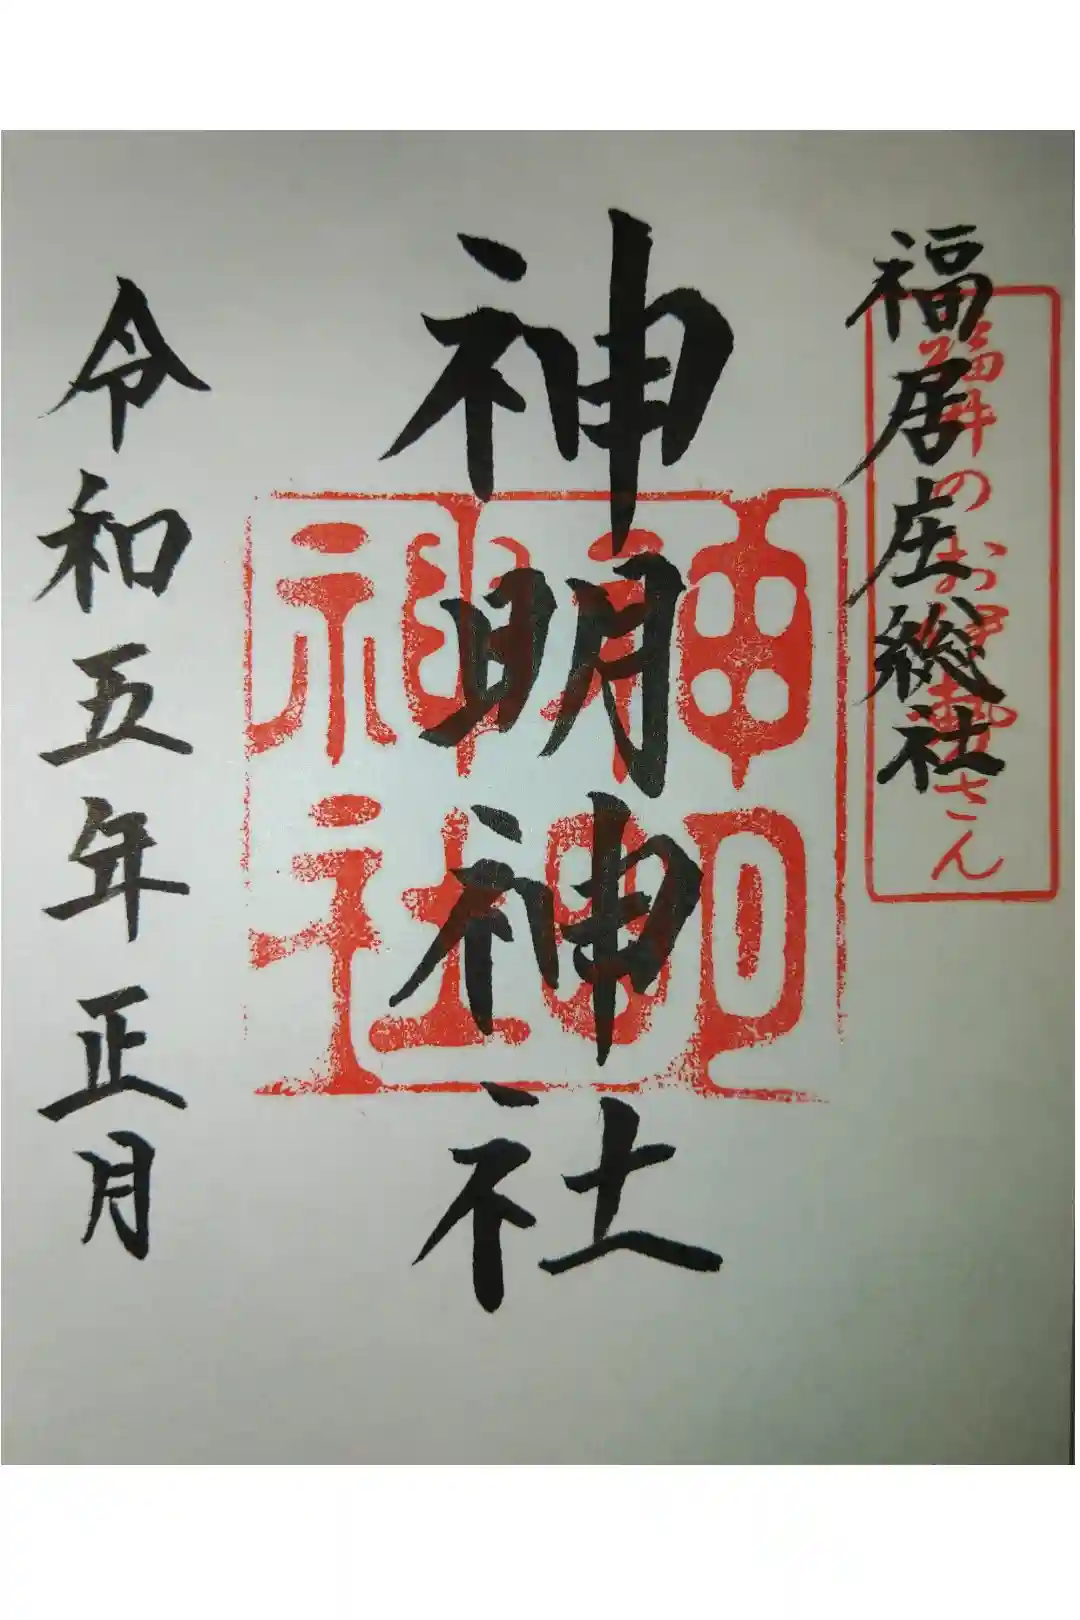 福居庄総社
福井のお伊勢さん
神明神社
神明神社神印
令和五年正月